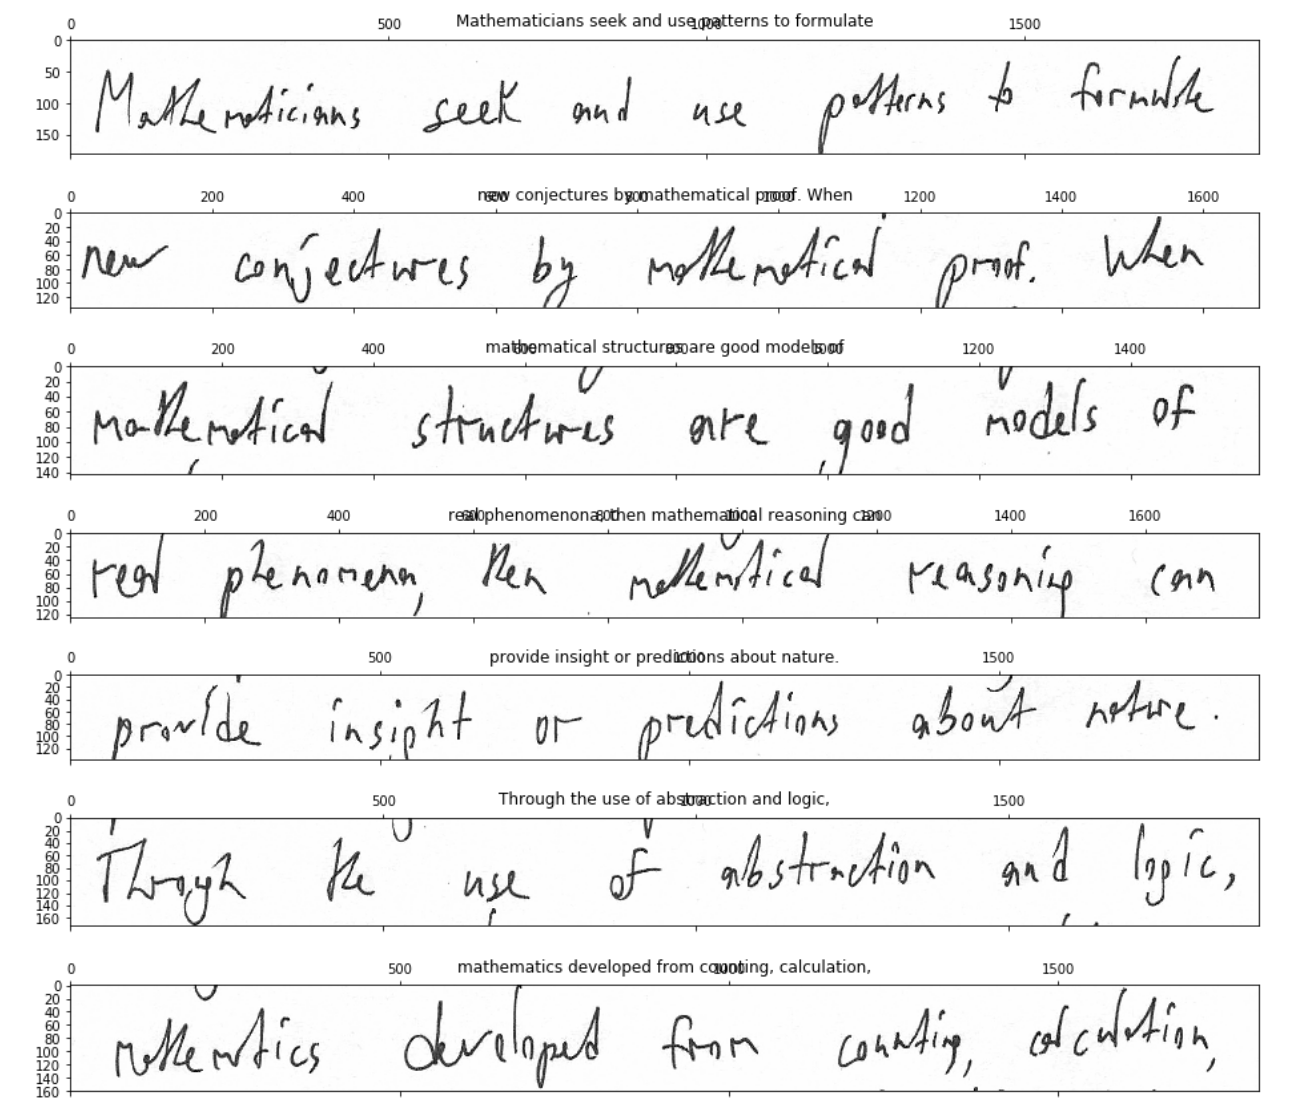 Mathematicians seek and use patterns to formulate
0 500 1000 1500
0
50
100
150
Mathematicians seek and use patterns to formulate
new conjectures by mathematical proof. When
0 200 400 600 800 1000 1200 1400 1600
0
20
40
60
80
100
120
new conjectures by mathematical proof. When
mathematical structures are good models of
0 200 400 600 800 1000 1200 1400
0
20
40
60
80
100
120
140
mathematical structures are good models of
real phenomenona, then mathematical reasoning can
0 200 400 600 800 1000 1200 1400 1600
0
20
40
60
80
100
120
real phenomena, then mathematical reasoning can
provide insight or predictions about nature.
0 500 1000 1500
0
20
40
60
80
100
120
provide insight or predictions about nature.
Through the use of abstraction and logic,
0 500 1000 1500
0
20
40
60
80
100
120
140
160
Through the use of abstraction and logic,
mathematics developed from counting, calculation,
0 500 1000 1500
0
20
40
60
80
100
120
140
160
mathematics developed from counting, calculation,